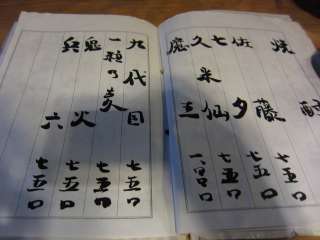 焼酎
佐藤 七五〇
七夕 七五〇
久米仙 七五〇
魔王 一、〇〇〇
九代目 七五〇
一粒の麦 七五〇
鬼火 七五〇
兵六 七五〇